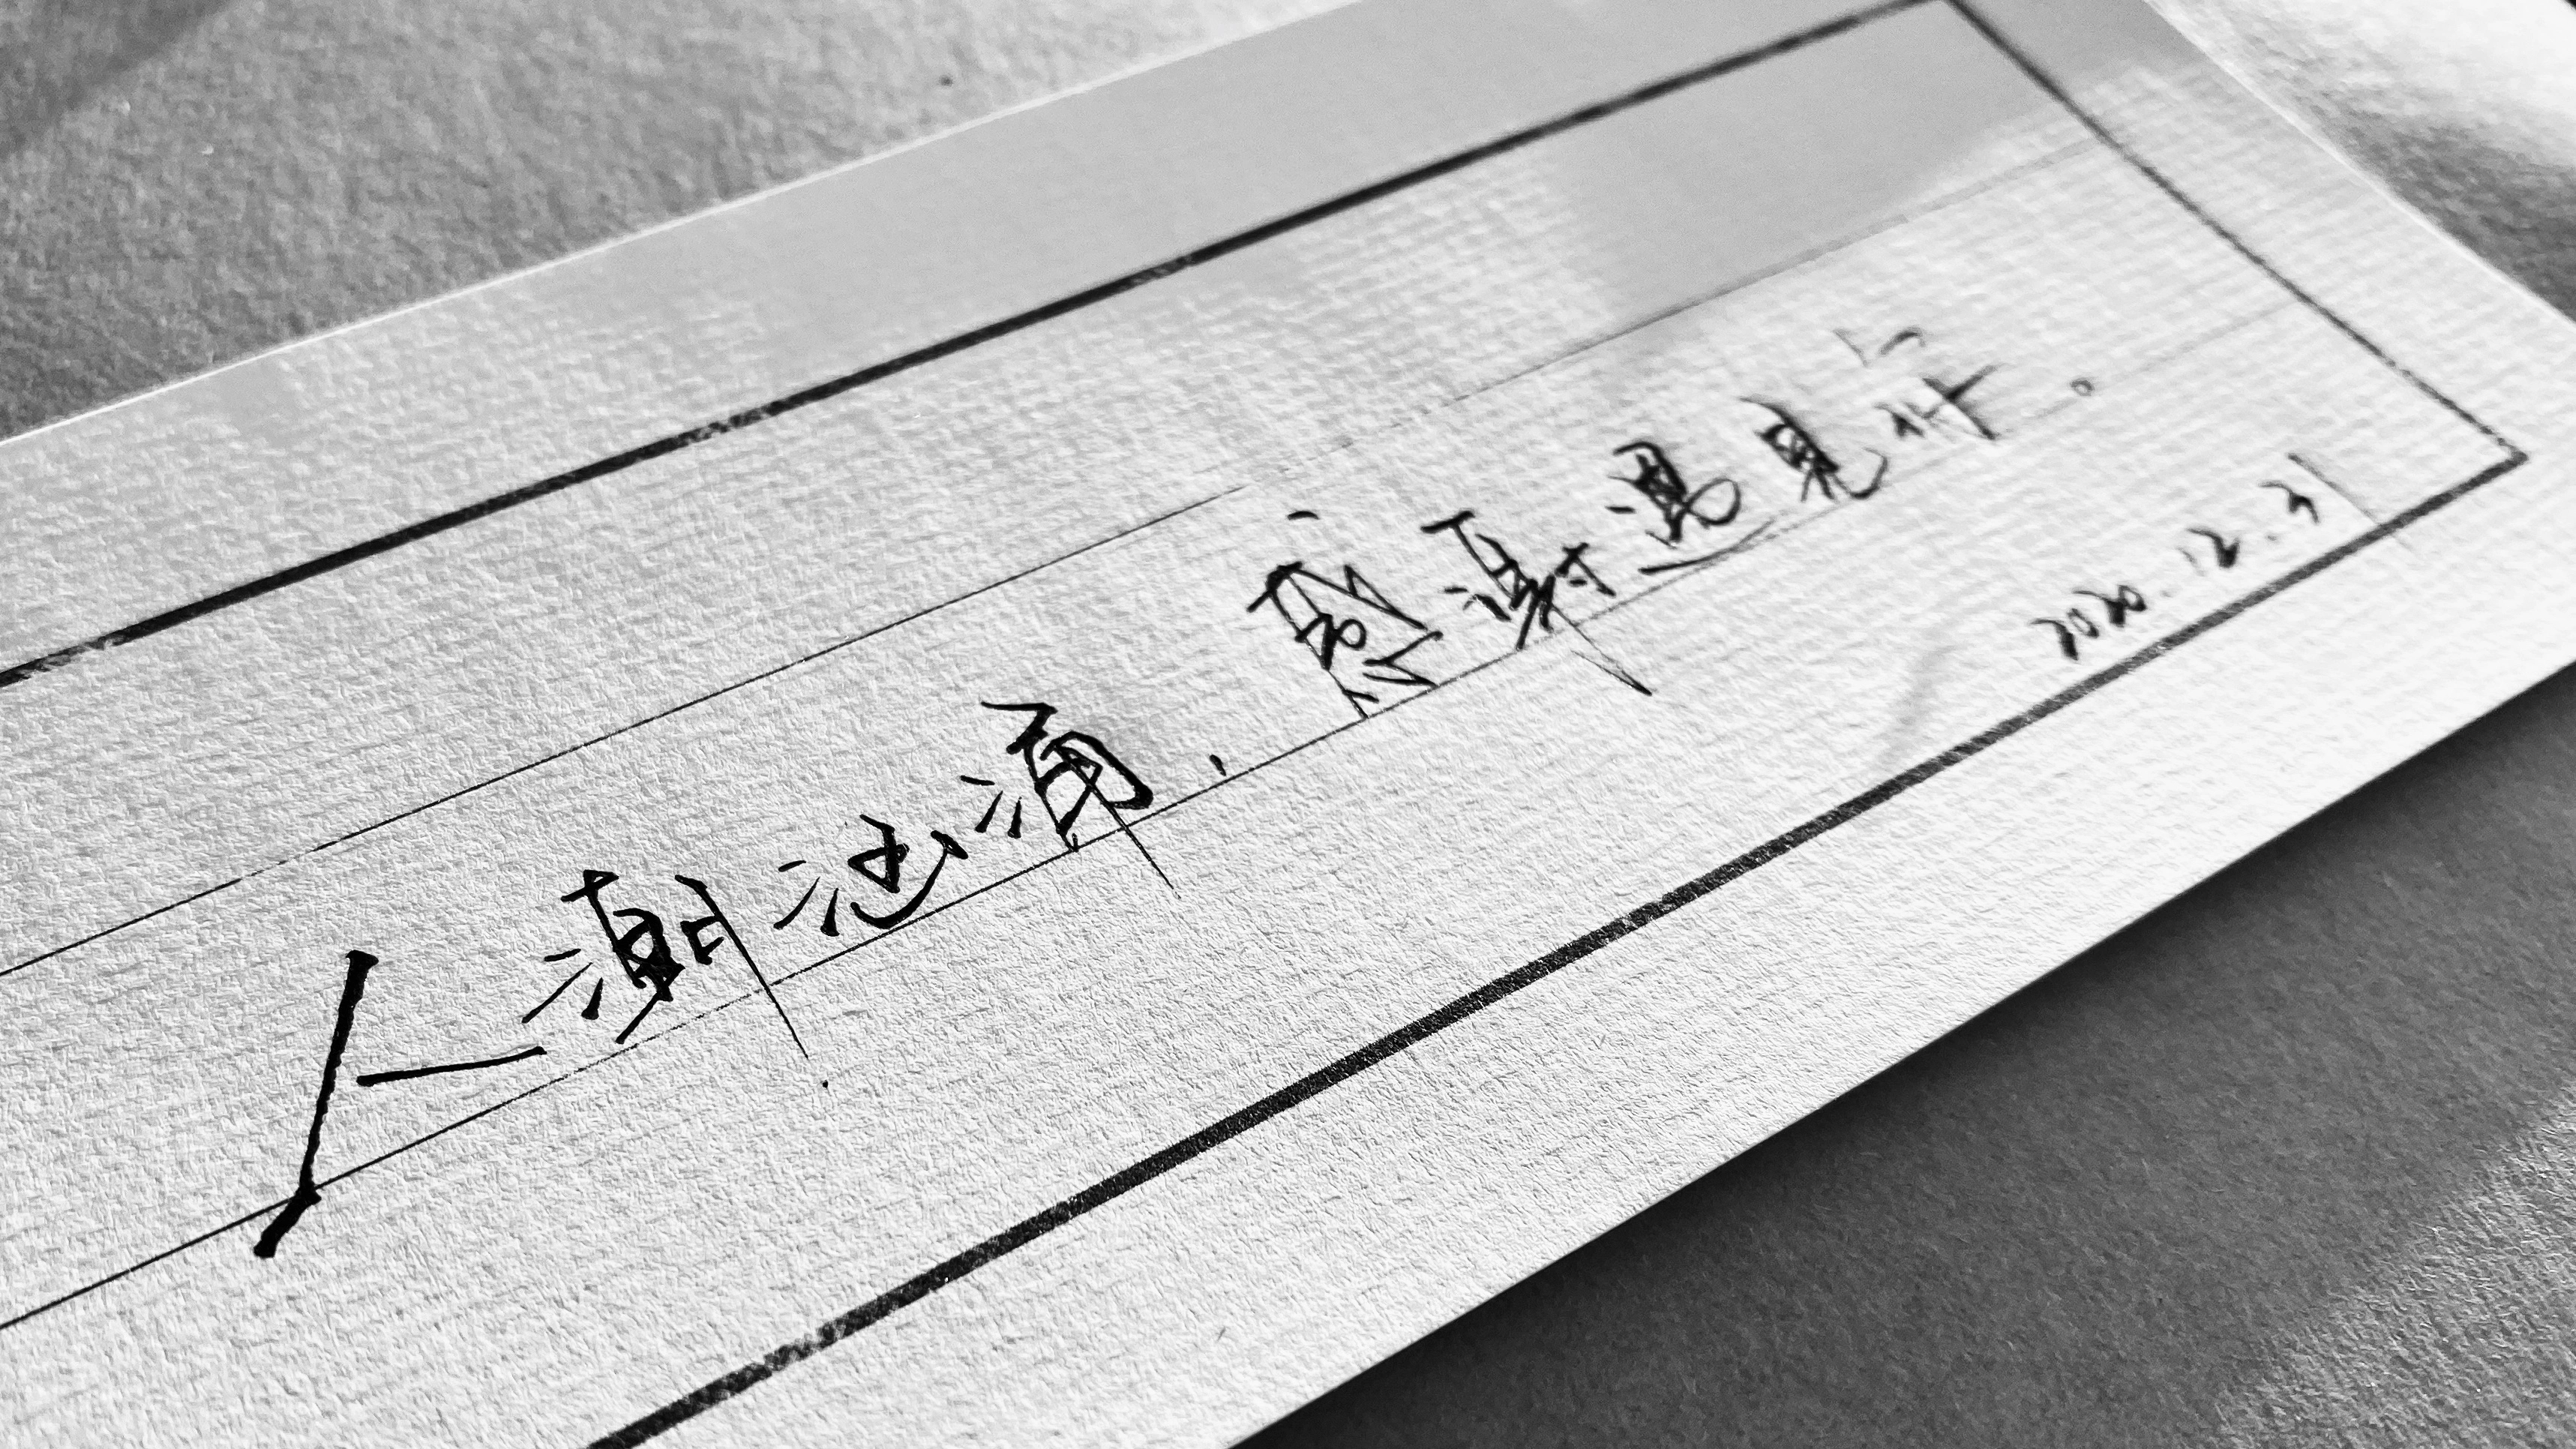 人潮汹涌，感谢遇见你。
2020.12.31